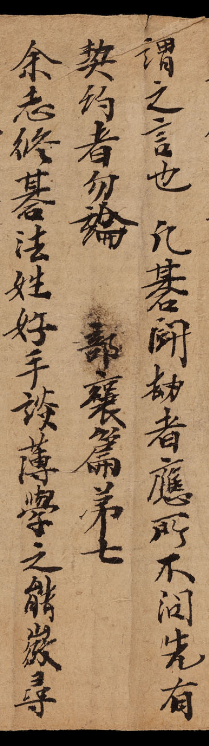 謂之言也 凡碁鬪劫者應所不問先有
契約者勿論 部襄篇第七
余志修碁法姓好手談薄學之能微尋